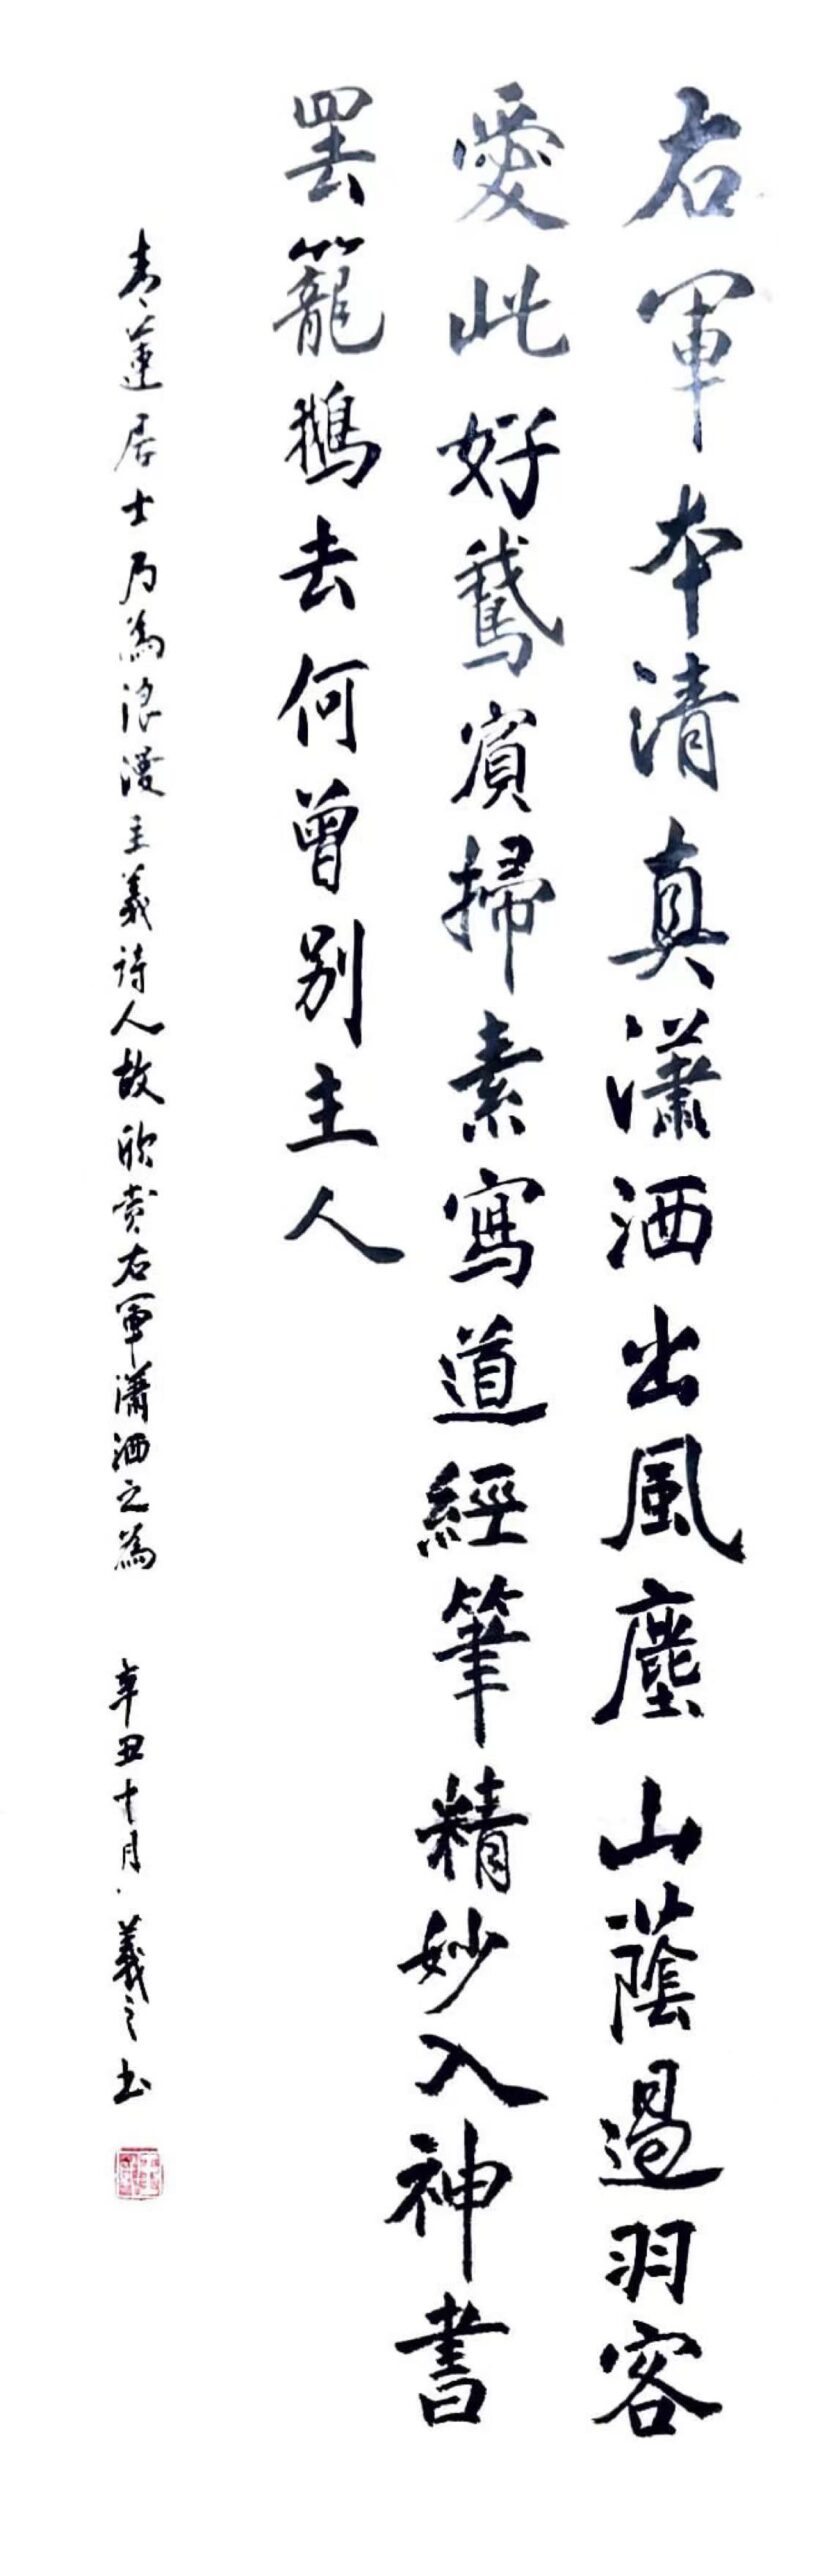 右軍本清真瀟洒出風塵山蔭過羽客
愛此好鵝賓掃素寫道經筆精妙入神書
罢籠鵝去何曾别主人
青蓮居士乃為浪漫主義诗人故欣赏右軍瀟洒之為 辛丑十月義之书